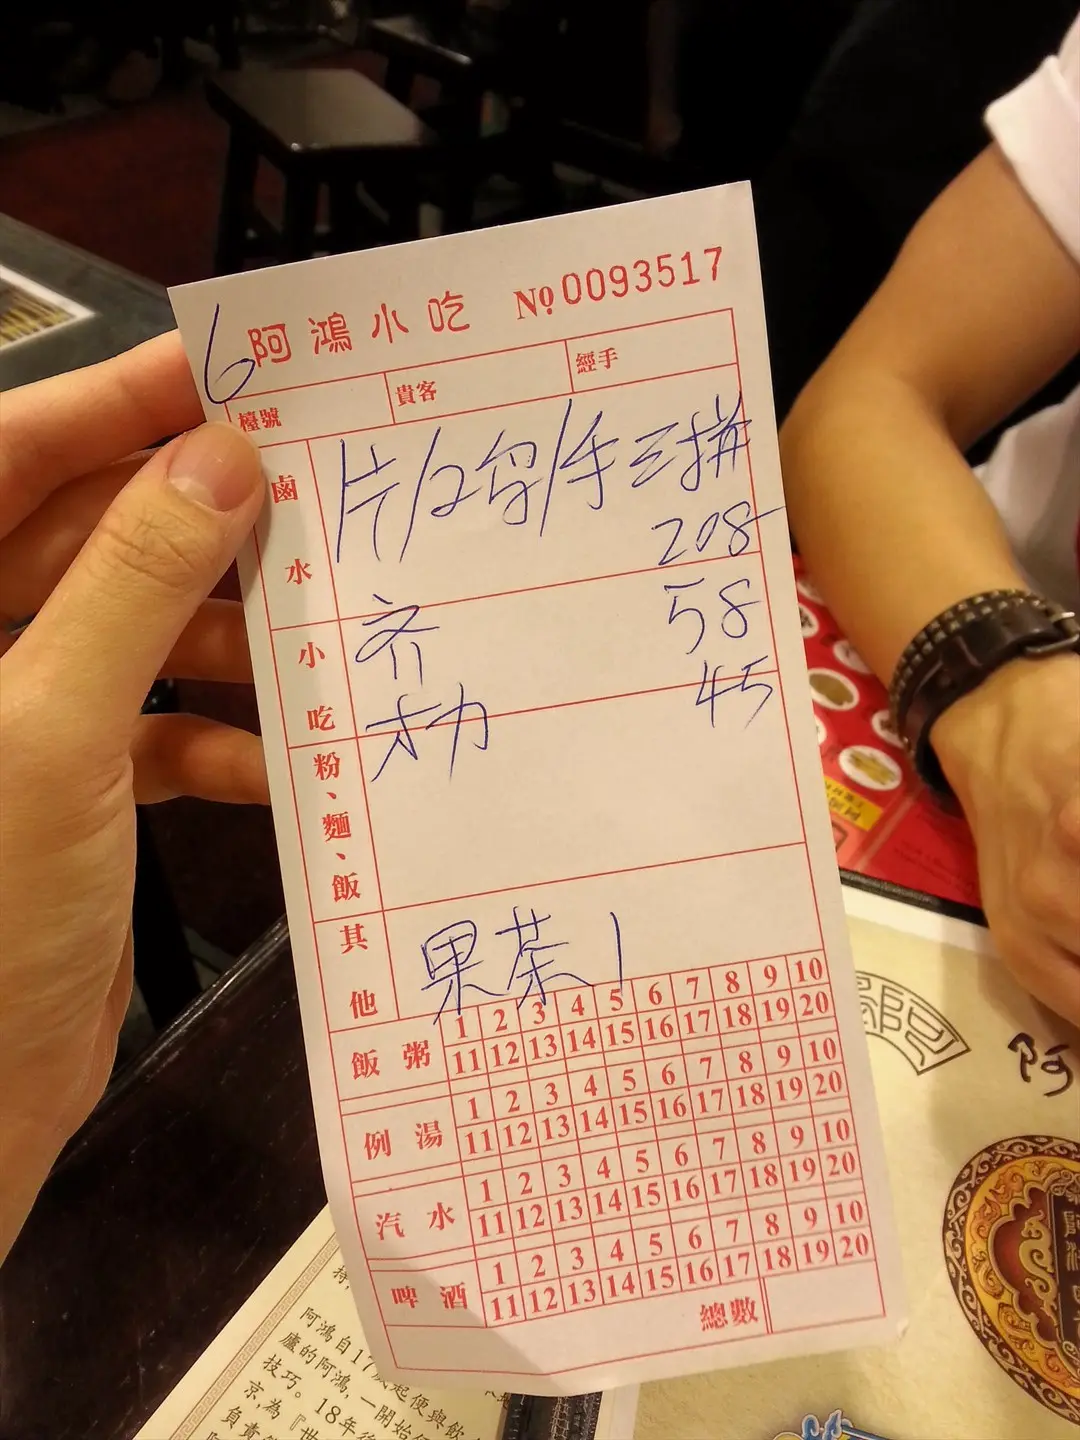 阿鴻小吃 No 0093517
6
檯號 貴客 經手
鹵水
三拼
208
小吃
58
45
粉、麵、飯
其他
果茶 1
飯粥 1 2 3 4 5 6 7 8 9 10
11 12 13 14 15 16 17 18 19 20
例湯 1 2 3 4 5 6 7 8 9 10
11 12 13 14 15 16 17 18 19 20
汽水 1 2 3 4 5 6 7 8 9 10
11 12 13 14 15 16 17 18 19 20
啤酒 1 2 3 4 5 6 7 8 9 10
11 12 13 14 15 16 17 18 19 20
總數
阿
阿鴻自17歲起便與飲
廬的阿鴻,一開始
技巧。18年後
京,為『世
負責